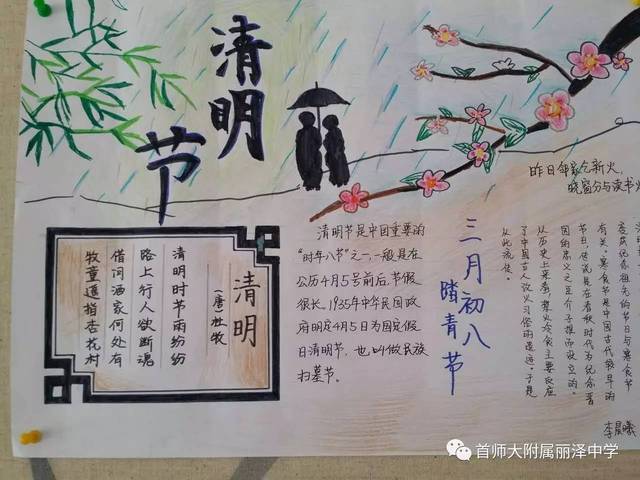 清明
节
昨日邻家乞新火，
晓窗分与读书灯
清明
（唐）杜牧
清明时节雨纷纷
路上行人欲断魂
借问酒家何处有
牧童遥指杏花村
清明节是中国重要的
“时年八节”之一，一般是在
公历4月5号前后，节假
很长，1935年中华民国政
府明定4月5日为国定假
日清明节，也叫做民族
扫墓节。
三月初八
踏青节
念祖先的节日与寒食节
有关。寒食节是中国古代较早的
节日，传说是在春秋时代为纪念晋
国的忠义之臣介子推而设立的。
从历史上来看，禁火冷食主要反应
了中国古人改火习俗的遗迹。于是
从此流传。
李晨曦
首师大附属丽泽中学